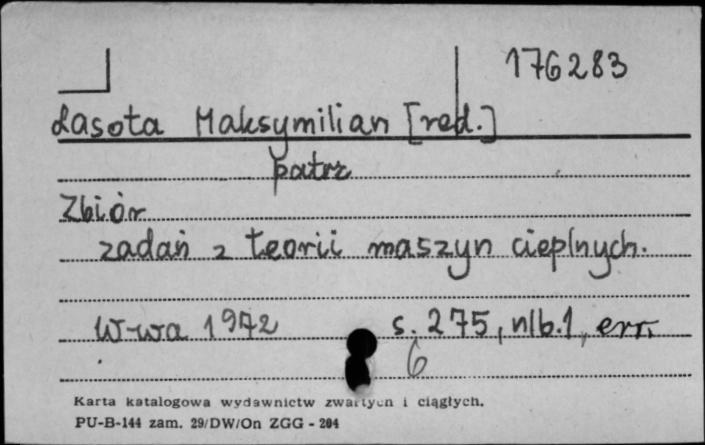 176283
Łasota Maksymilian [red.]
patrz
Zbiór
zadań z teorii maszyn cieplnych.
W-wa 1972 s. 275, nlb.1, err.
6
Karta katalogowa wydawnictw zwartych i ciągłych.
PU-B-144 zam. 29/DW/On ZGG - 204